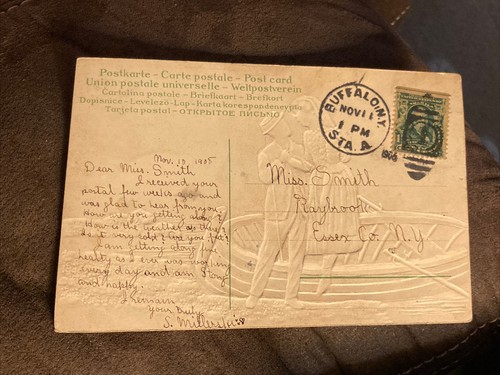 Postkarte - Carte postale - Post card
Union postale universelle - Weltpostverein
Cartolina postale - Briefkaart - Brefkort
Dopisnice - Levelező-Lap - Karta korespondencyjna
Tarjeta postal - ОТКРЫТОЕ ПИСЬМО
BUFFALO, N.Y.
NOV 11
1 PM
STA. A.
Nov. 10 1905
Dear Miss. Smith
I received your
postal few weeks ago and
was glad to hear from you,
How are you getting along?
How is the weather up there?
Isn't very cold? Are you
I am getting along
hearty as ever was working
every day and am Strong
and happy.
I Remain
Your truly
S.
Miss. Smith
Raybrook
Essex Co. N.Y